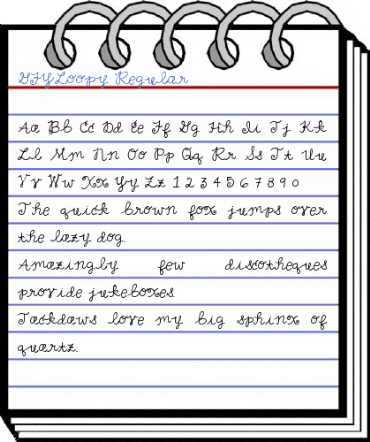 GFYLoopy Regular
Aa Bb Cc Dd Ee Ff Gg Hh Ii Jj Kk
Ll Mm Nn Oo Pp Qq Rr Ss Tt Uu
Vv Ww Xx Yy Zz 1 2 3 4 5 6 7 8 9 0
The quick brown fox jumps over
the lazy dog
Amazingly few discotheques
provide jukeboxes
Jackdaws love my big sphinx of
quartz.